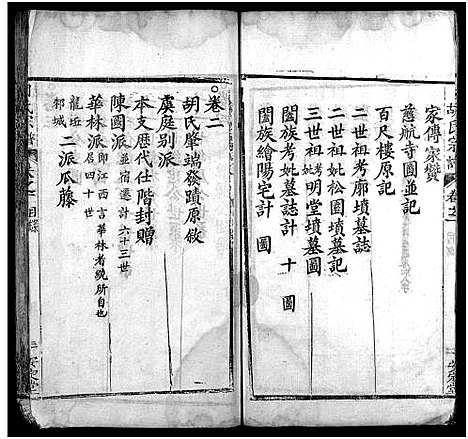 胡氏宗譜
卷之
家傳家贊
慈航寺圖並記
百尺樓原記
二世祖考廓墳墓誌
二世祖妣松園墳墓記
三世祖考妣明堂墳墓圖
闔族考妣墓誌計十圖
闔族繪陽宅計 圖
卷二
胡氏肇端發蹟原敘
虞庭別派
本支歷代仕階封贈
陳國派並宿遷計六十三世
華林派即江西言華林者統所自也
居四十世
龍坵
邾城
二派瓜藤
目錄
安定堂